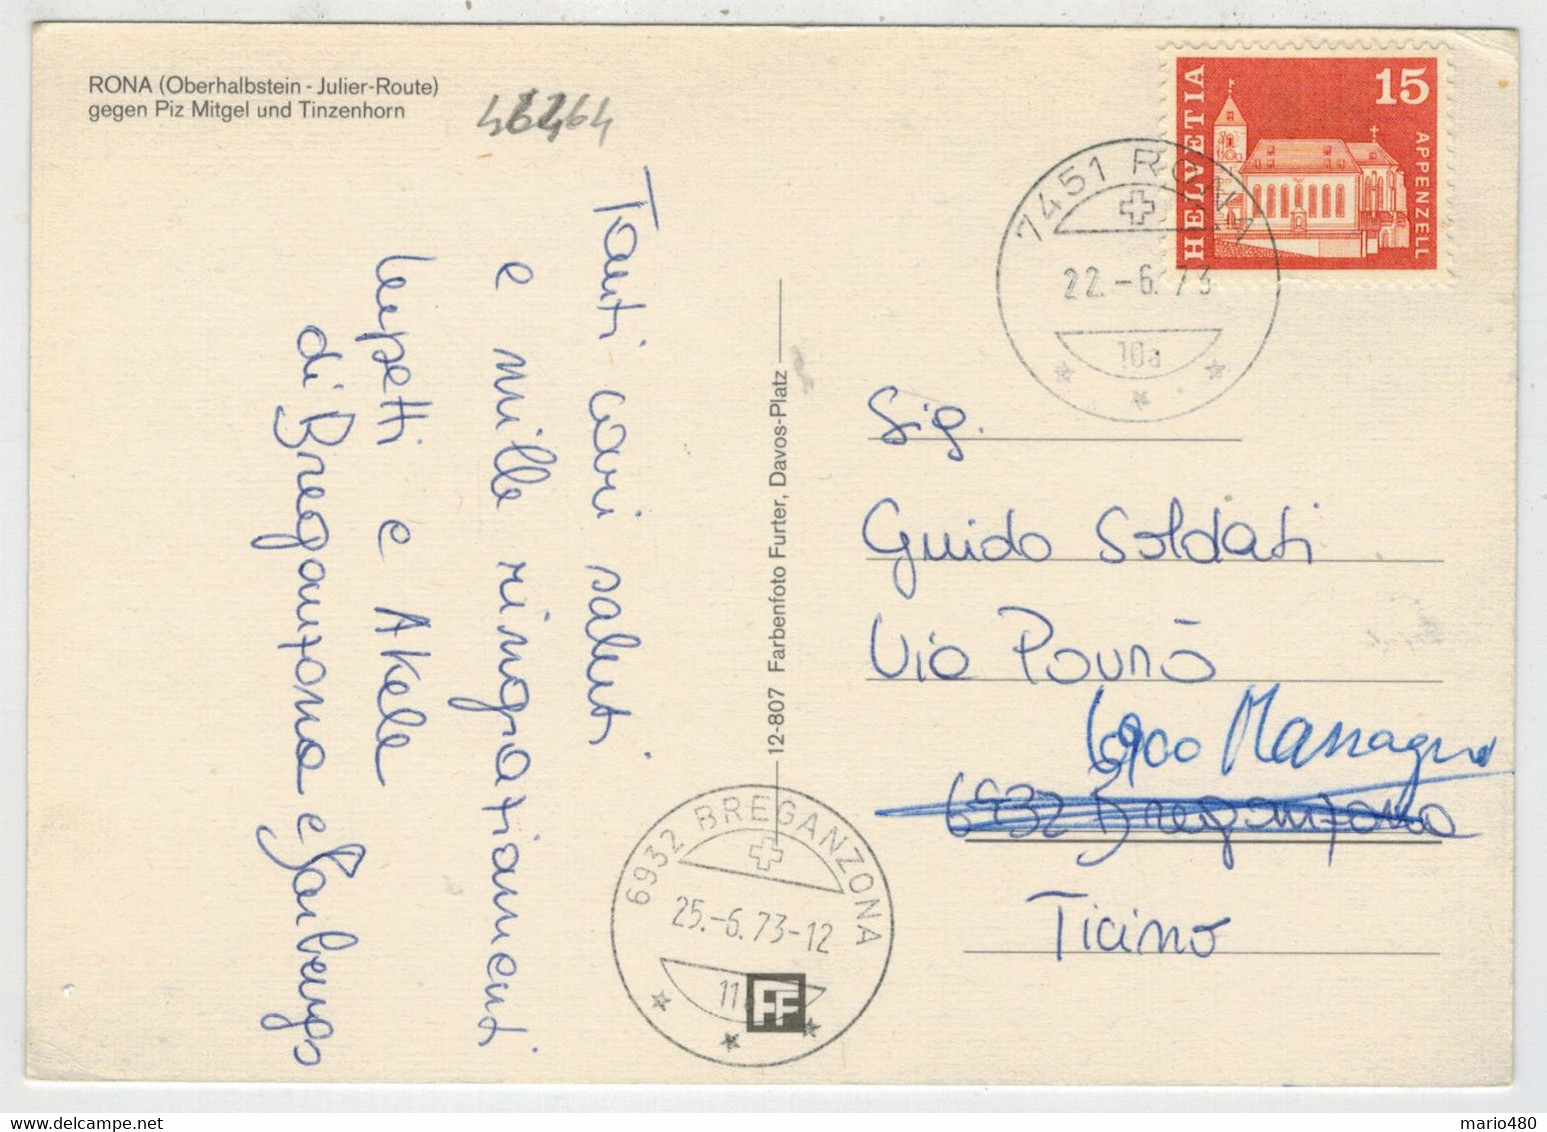 RONA (Oberhalbstein - Julier-Route)
gegen Piz Mitgel und Tinzenhorn
HELVETIA
15
APPENZELL
7451 RONA
22.-6.73
10a
Tanti cari saluti
e mille ringraziamenti
e Akele
di Breganzona e
12-807 Farbenfoto Furter, Davos-Platz
Sig.
Guido Soldati
Via Povrò
6900 Massagno
6932 Breganzona
Ticino
6932 BREGANZONA
25.-6.73-12
11
FF
mario480